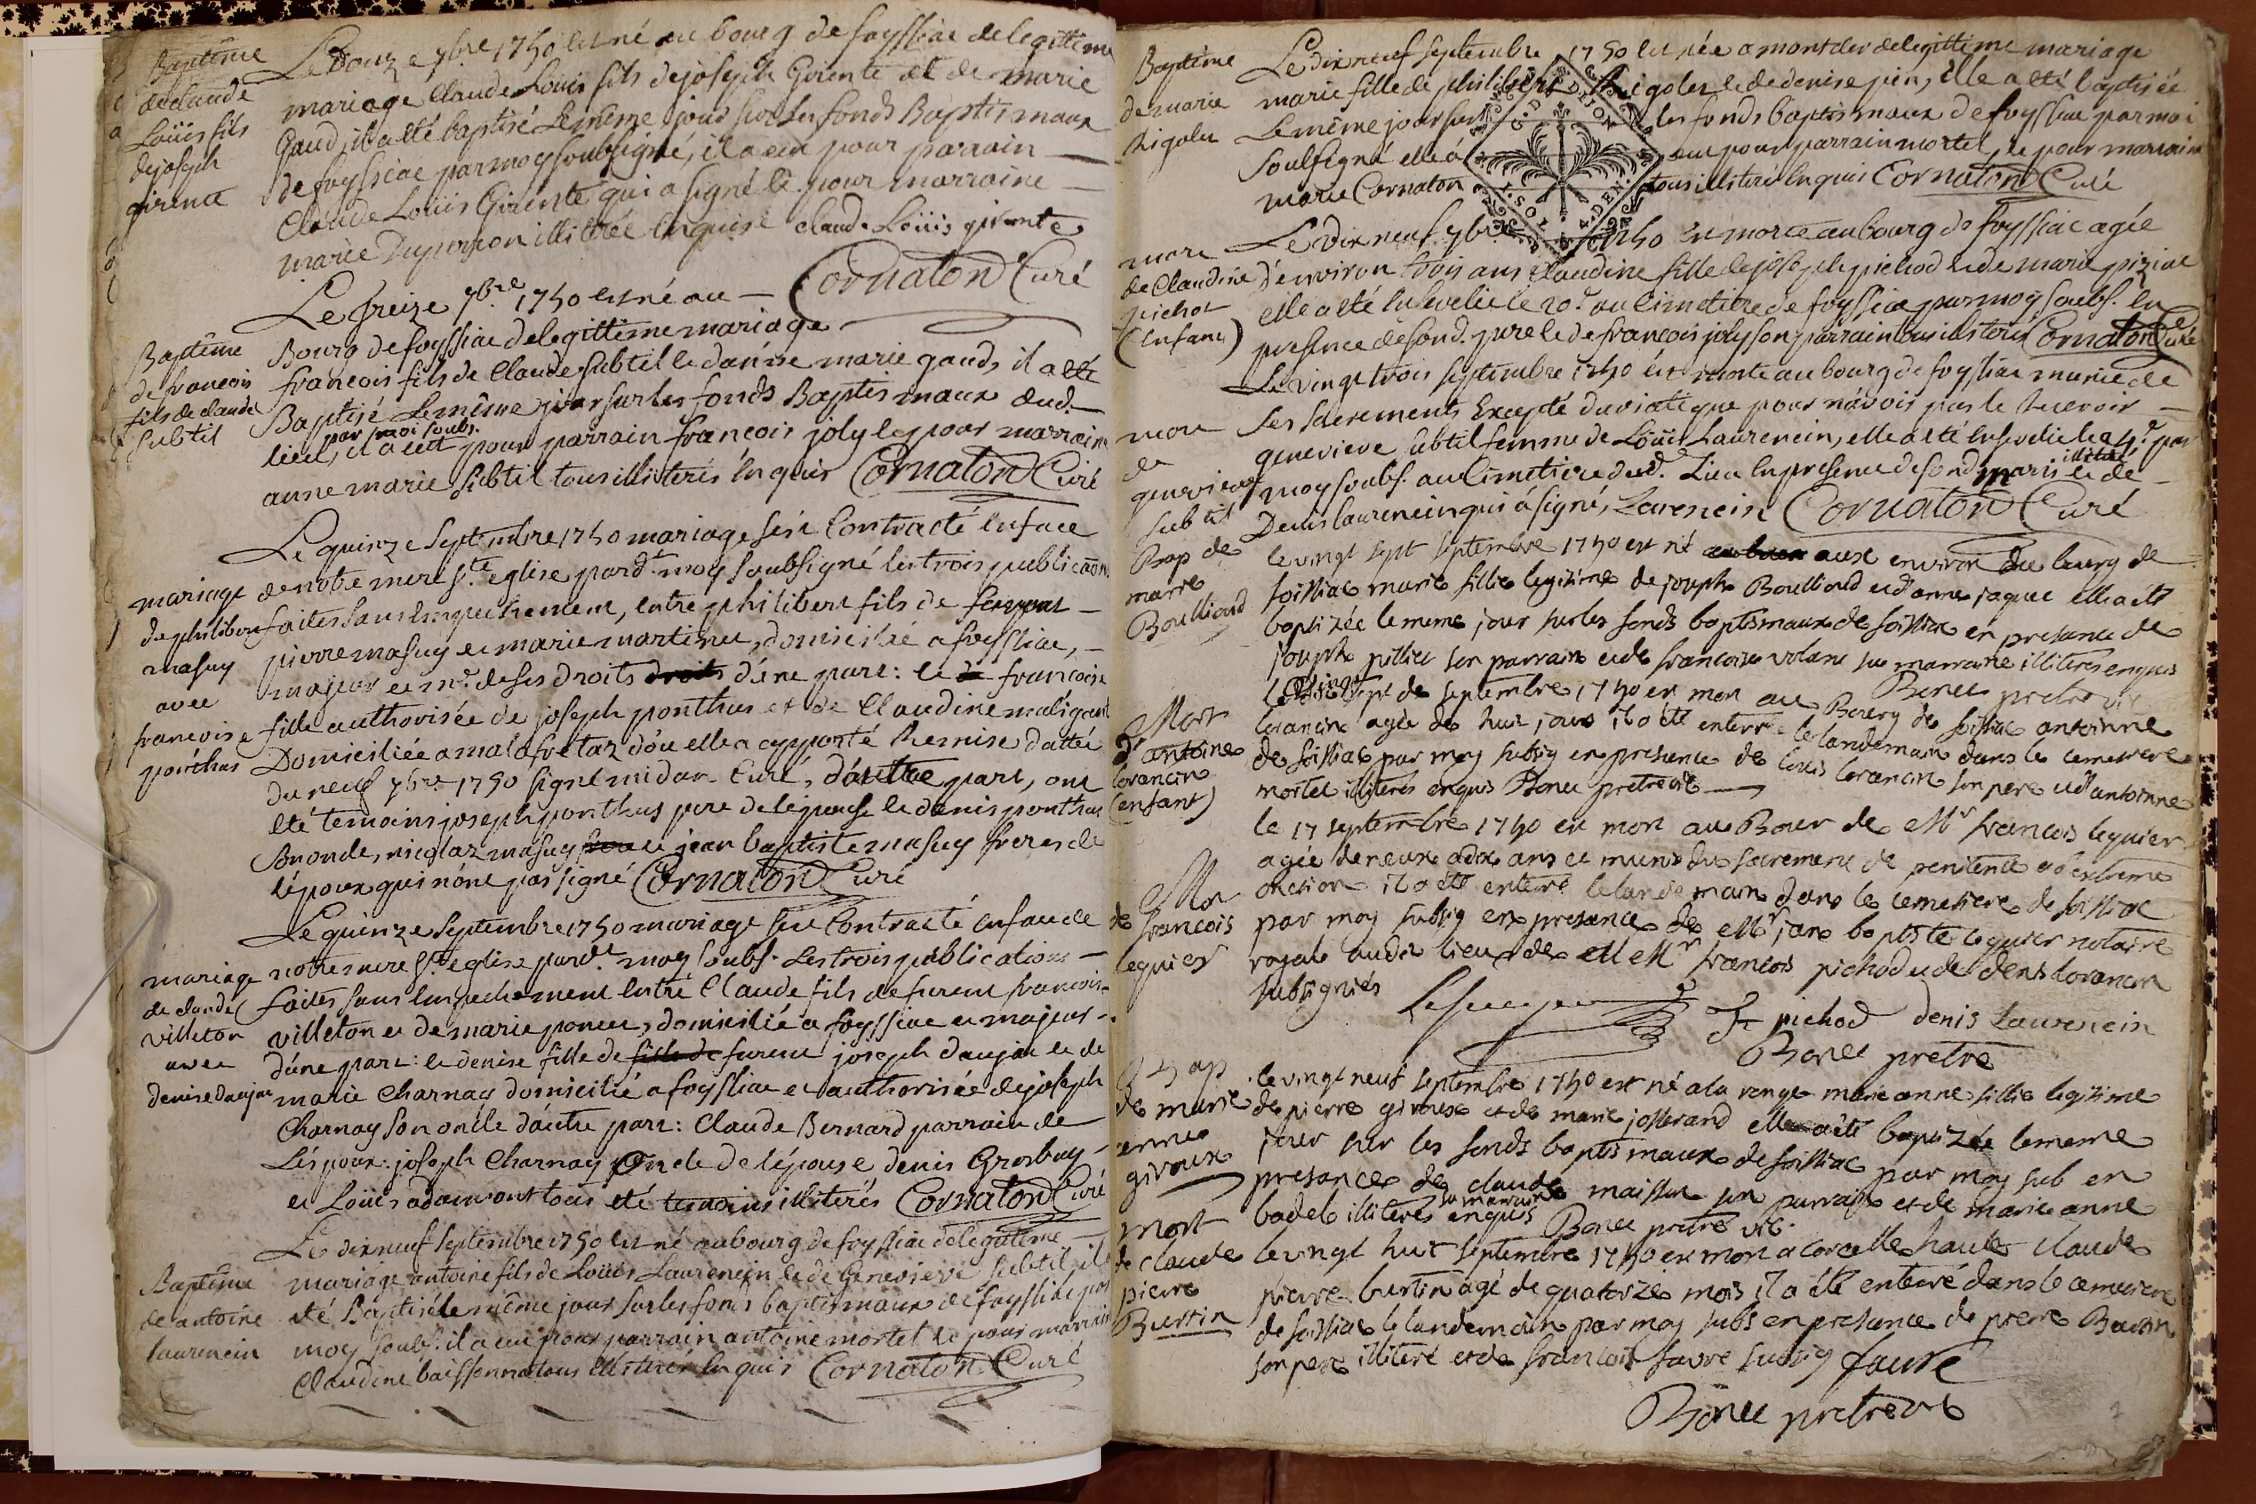 Baptême
de claude
Loüis fils
de joseph
girente
Le Douze 7bre 1750 est né au bourg de foyssiac de legittime
mariage Claude Louis fils de joseph Girente et de marie
Gaud, il a été baptisé le même jour sur les fonds Baptismaux
de foyssiac par moy soubsigné, il a eu pour parrain
Claude Loüis Girente qui a signé et pour marraine
marie Duperron illiterée enquise claude Loüis girente
Cornaton Curé
Baptême
de francois
fils de claude
Subtil
Le treize 7bre 1750 est né au
Bourg de foyssiac de legittime mariage
francois fils de Claude Subtil et de anne marie gaud, il a été
Baptisé le même jour sur les fonds Baptismaux dud.
par moi soubs.
lieu, il a eu pour parrain francois joly et pour marraine
anne marie Subtil tous illiterés enquis Cornaton Curé
mariage
de philibert
masuy
avec
francoise
ponthus
Le quinze Septembre 1750 mariage s'est Contracté en face
de notre mere ste eglise pard.t moy soubsigné les trois publicaõns
faites sans empechement, entre philibert fils de
pierre masuy et marie martinet, domicilié a foyssiac,
majeur et m.e de ses droits droits d'une part: et francoise
fille authorisée de joseph ponthus et de Claudine maligand
Domiciliée a malafretaz d'ou elle a apporté Remise dattée
du neuf 7bre 1750 signé midan Curé, d'autre part, ont
été temoins joseph ponthus pere de lépouse et denis ponthus
son oncle, nicolaz masuy et jean baptiste masuy freres de
lépoux qui n'ont pas signé Cornaton Curé
mariage
de claude
villeton
avec
denise daujat
Le quinze Septembre 1750 mariage s'est Contracté en face de
notre mere ste eglise pard.t moy soubs. Les trois publications
faites sans empechement entre Claude fils de furent francois
villeton et de marie poncet, domicilié a foyssiac et majeur
d'une part: et denise fille de fille de furent joseph daujat et de
marie Charnay domicilié a foyssiac et authorisée de joseph
Charnay son oncle d'autre part: Claude Bernard parrain de
L'époux. joseph Charnay oncle de lépouse denis Grosbuy
et Loüis adam ont tous eté temoins illiterés Cornaton Curé
Baptême
de antoine
laurencin
Le dix neuf Septembre 1750 est né au bourg de foyssiac de legittime
mariage antoine fils de Loüis Laurencin et de Genevieve Subtil, il a
été Baptisé le même jour sur les fonds baptismaux de foyssiac par
moy soubs. il a eu pour parrain antoine mortel et pour marraine
Claudine baissonna tous illiterés enquis Cornaton Curé
Baptême
de marie
Rigolet
Le dix neuf Septembre 1750 est née a montcler de legittime mariage
marie fille de philibert Rigolet et de denise pin, elle a été baptisée
Le même jour sur les fonds baptismaux de foyssiac par moi
Soussigné elle a eut pour parrain mortel, et pour marraine
marie Cornaton tous illiteré enquis Cornaton Curé
G. D. DIJON
1. SOL 4. DEN.
mort
de Claudine
pichot
(enfant)
Le Dix neuf 7bre 1750 est morte au bourg de foyssiac agée
d'environ trois ans Claudine fille de joseph pichod et de marie piziat
elle a été ensevelie le 20.e au Cimetiere de foyssiac par moy soubs. en
presence de sond. pere et de francois joly son parrain tous illiterés Cornaton Curé
mort
de
genevieve
subtil
Le vingt trois Septembre 1750 est morte au bourg de foyssiac munie de
ses sacrements Excepté du viatique pour n'avoir pas le recevoir
genevieve subtil femme de Loüis Laurencin, elle a été ensevelie le 24.e par
moy soubs. au Cimetiere dud. Lieu en presence de sond. maris illiteré et de
Denis laurencin qui a signé, Larencin Cornaton Curé
Bap de
marie
Boulliaud
le vingt sept septembre 1750 est né aux environ du bourg de
soissiac marie fillie legizime de joseph Boulliaud et d'anne jaquet elle a été
baptizée le meme jour sur les fonds baptismaux de soissiac en presance de
joseph pillict son parrain et de francoise volant sa marraine illiteres enquis
Bonet pretre vic
Mort
d'antoine
lorancin
(enfant)
le vingt sept de septembre 1750 est mort au Bourg de soissiac antoinne
lorancin agée de huit jours il a été enterré le landemain dans le cemetiere
de soissiac par moy subsig en presance de louis lorancin son pere et d'antoinne
mortel illiterés enquis Bonet pretre vic
Mor
de
francois
lequier
le 17 septembre 1750 est mort au Bour de Mr francois lequier
agée de neuf a dix ans et munis du sacrement de penitence et extreme
onction il a été enterré le landemain dans le cemetiere de soissiac
par moy subsig en presance de Mr jan baptiste lequier notaire
royale audit lieu et de Mr francois pichod et de denis lorancin
subsignés
Fr pichod denis Laurencin
Bonet pretre
Bap
de marie
anne
giroux
le vingt neuf septembre 1750 est né a la verge marie anne fillie legizime
de pierre giroux et de marie josserand elle a été baptizée lememe
jour sur les fonds baptismaux de soissiac par moy sub en
presance de claude maissiat son parrain et de marie anne
badel sa marraine illiteres enquis Bonet pretre vic.
mort
de claude
pierre
Burtin
le vingt huit septembre 1750 est mort a corcelle haute claude
pierre burtin agé de quatorze mois il a été enterré dans le cemetiere
de soissiac le landemain par moy subs en presance de pierre Burtin
son pere illiteré et de francois favre subsig faure
Bonet pretre vic